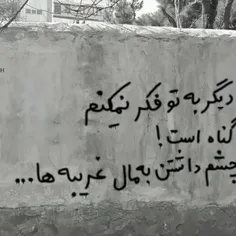 دیگر به تو فکر نمیکنم
گناه است!
چشم داشتن به مال غریبه ها...